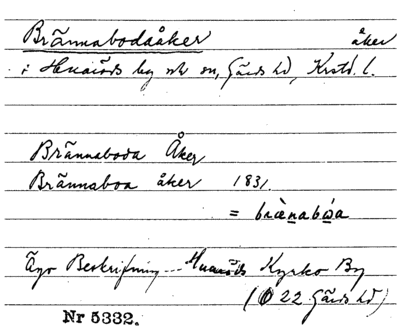 Brännabodaåker åker
i Huaröds by och sn, Gärds hd, Krstd. l.
Brännaboda Åker
Brännaboa åker 1831.
= bràǹaboa
Äga Beskrifning... Huaröds Kyrko By
( 22 Gärds hd)
Nr 5332.